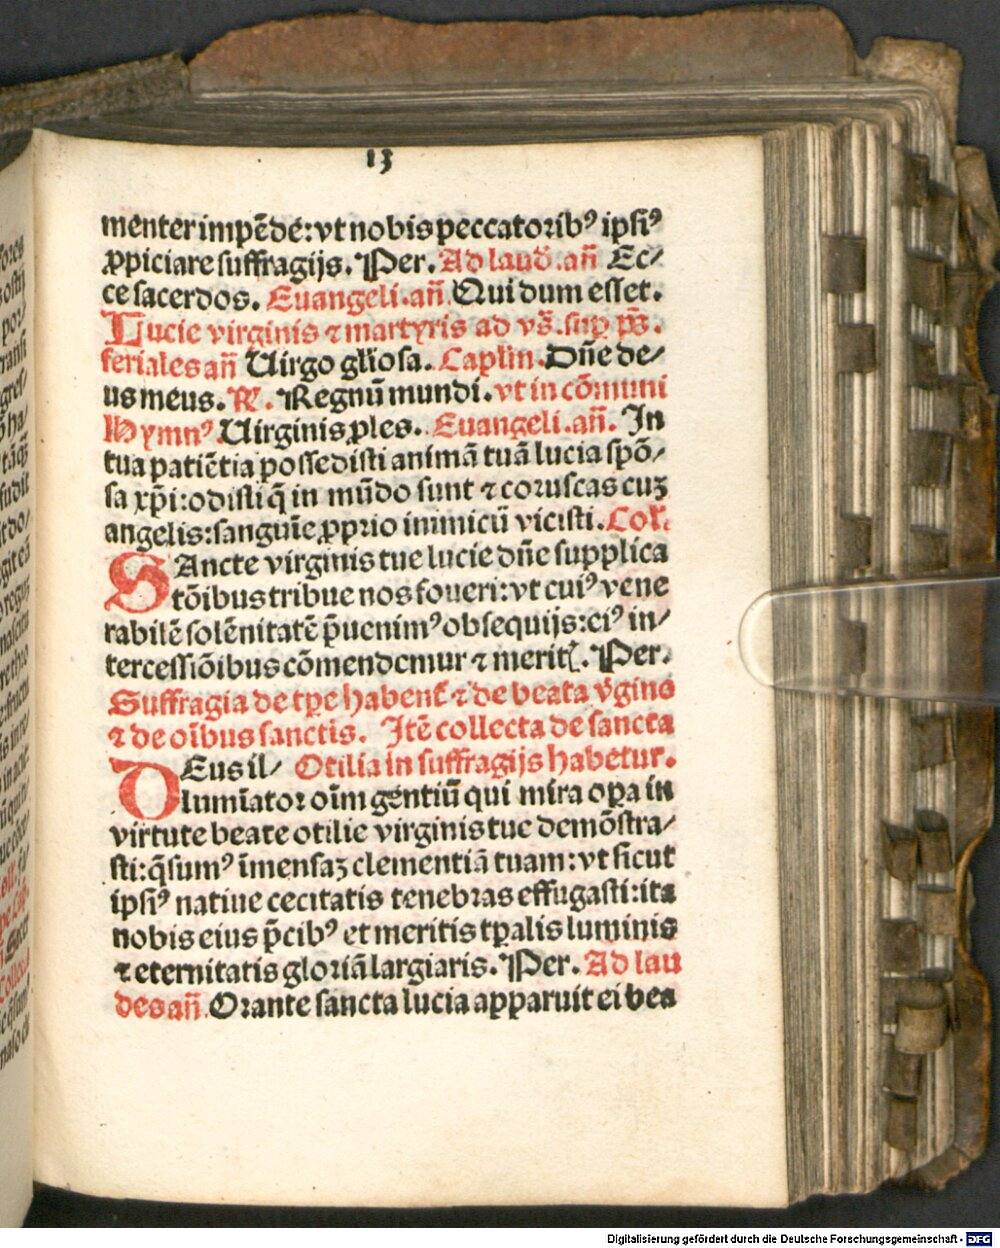 13
menter impēde: vt nobis peccatoribꝰ ipsiꝰ
ꝓpiciare suffragijs. Per. Ad laud̄. añ Ec⸗
ce sacerdos. Euangeli. añ Qui dum esset.
Lucie virginis ⁊ martyris ad vs̄. sup p̄s.
feriales añ Uirgo gl̄iosa. Caplm̄. Dn̄e de⸗
us meus. ℟. Regnū mundi. vt in cōmuni
Hymnꝰ Uirginis ꝓles. Euangeli. añ. In
tua patiētia possedisti animā tuā lucia spō⸗
sa xp̄i: odisti q̄ in mūdo sunt ⁊ coruscas cuȝ
angelis: sanguīe ꝓprio inimicū vicisti. Col̄.
SAncte virginis tue lucie dn̄e supplica
tōibus tribue nos foueri: vt cuiꝰ vene
rabilē solēnitatē p̄uenimꝰ obsequijs: eiꝰ in⸗
tercessiōibus cōmendemur ⁊ meritꝭ. Per.
Suffragia de tp̄e habent̄ ⁊ de beata v̄gine
⁊ de oībus sanctis. Itē collecta de sancta
DEus il⸗ Otilia in suffragijs habetur.
lumīator oīm gentiū qui mira oꝑa in
virtute beate otilie virginis tue demōstra⸗
sti: q̄sumꝰ īmensaȝ clementiā tuam: vt sicut
ipsiꝰ natiue cecitatis tenebras effugasti: ita
nobis eius p̄cibꝰ et meritis tꝑalis luminis
⁊ eternitatis gloriā largiaris. Per. Ad lau
des añ. Orante sancta lucia apparuit ei bea
fores
Digitalisierung gefördert durch die Deutsche Forschungsgemeinschaft - DFG